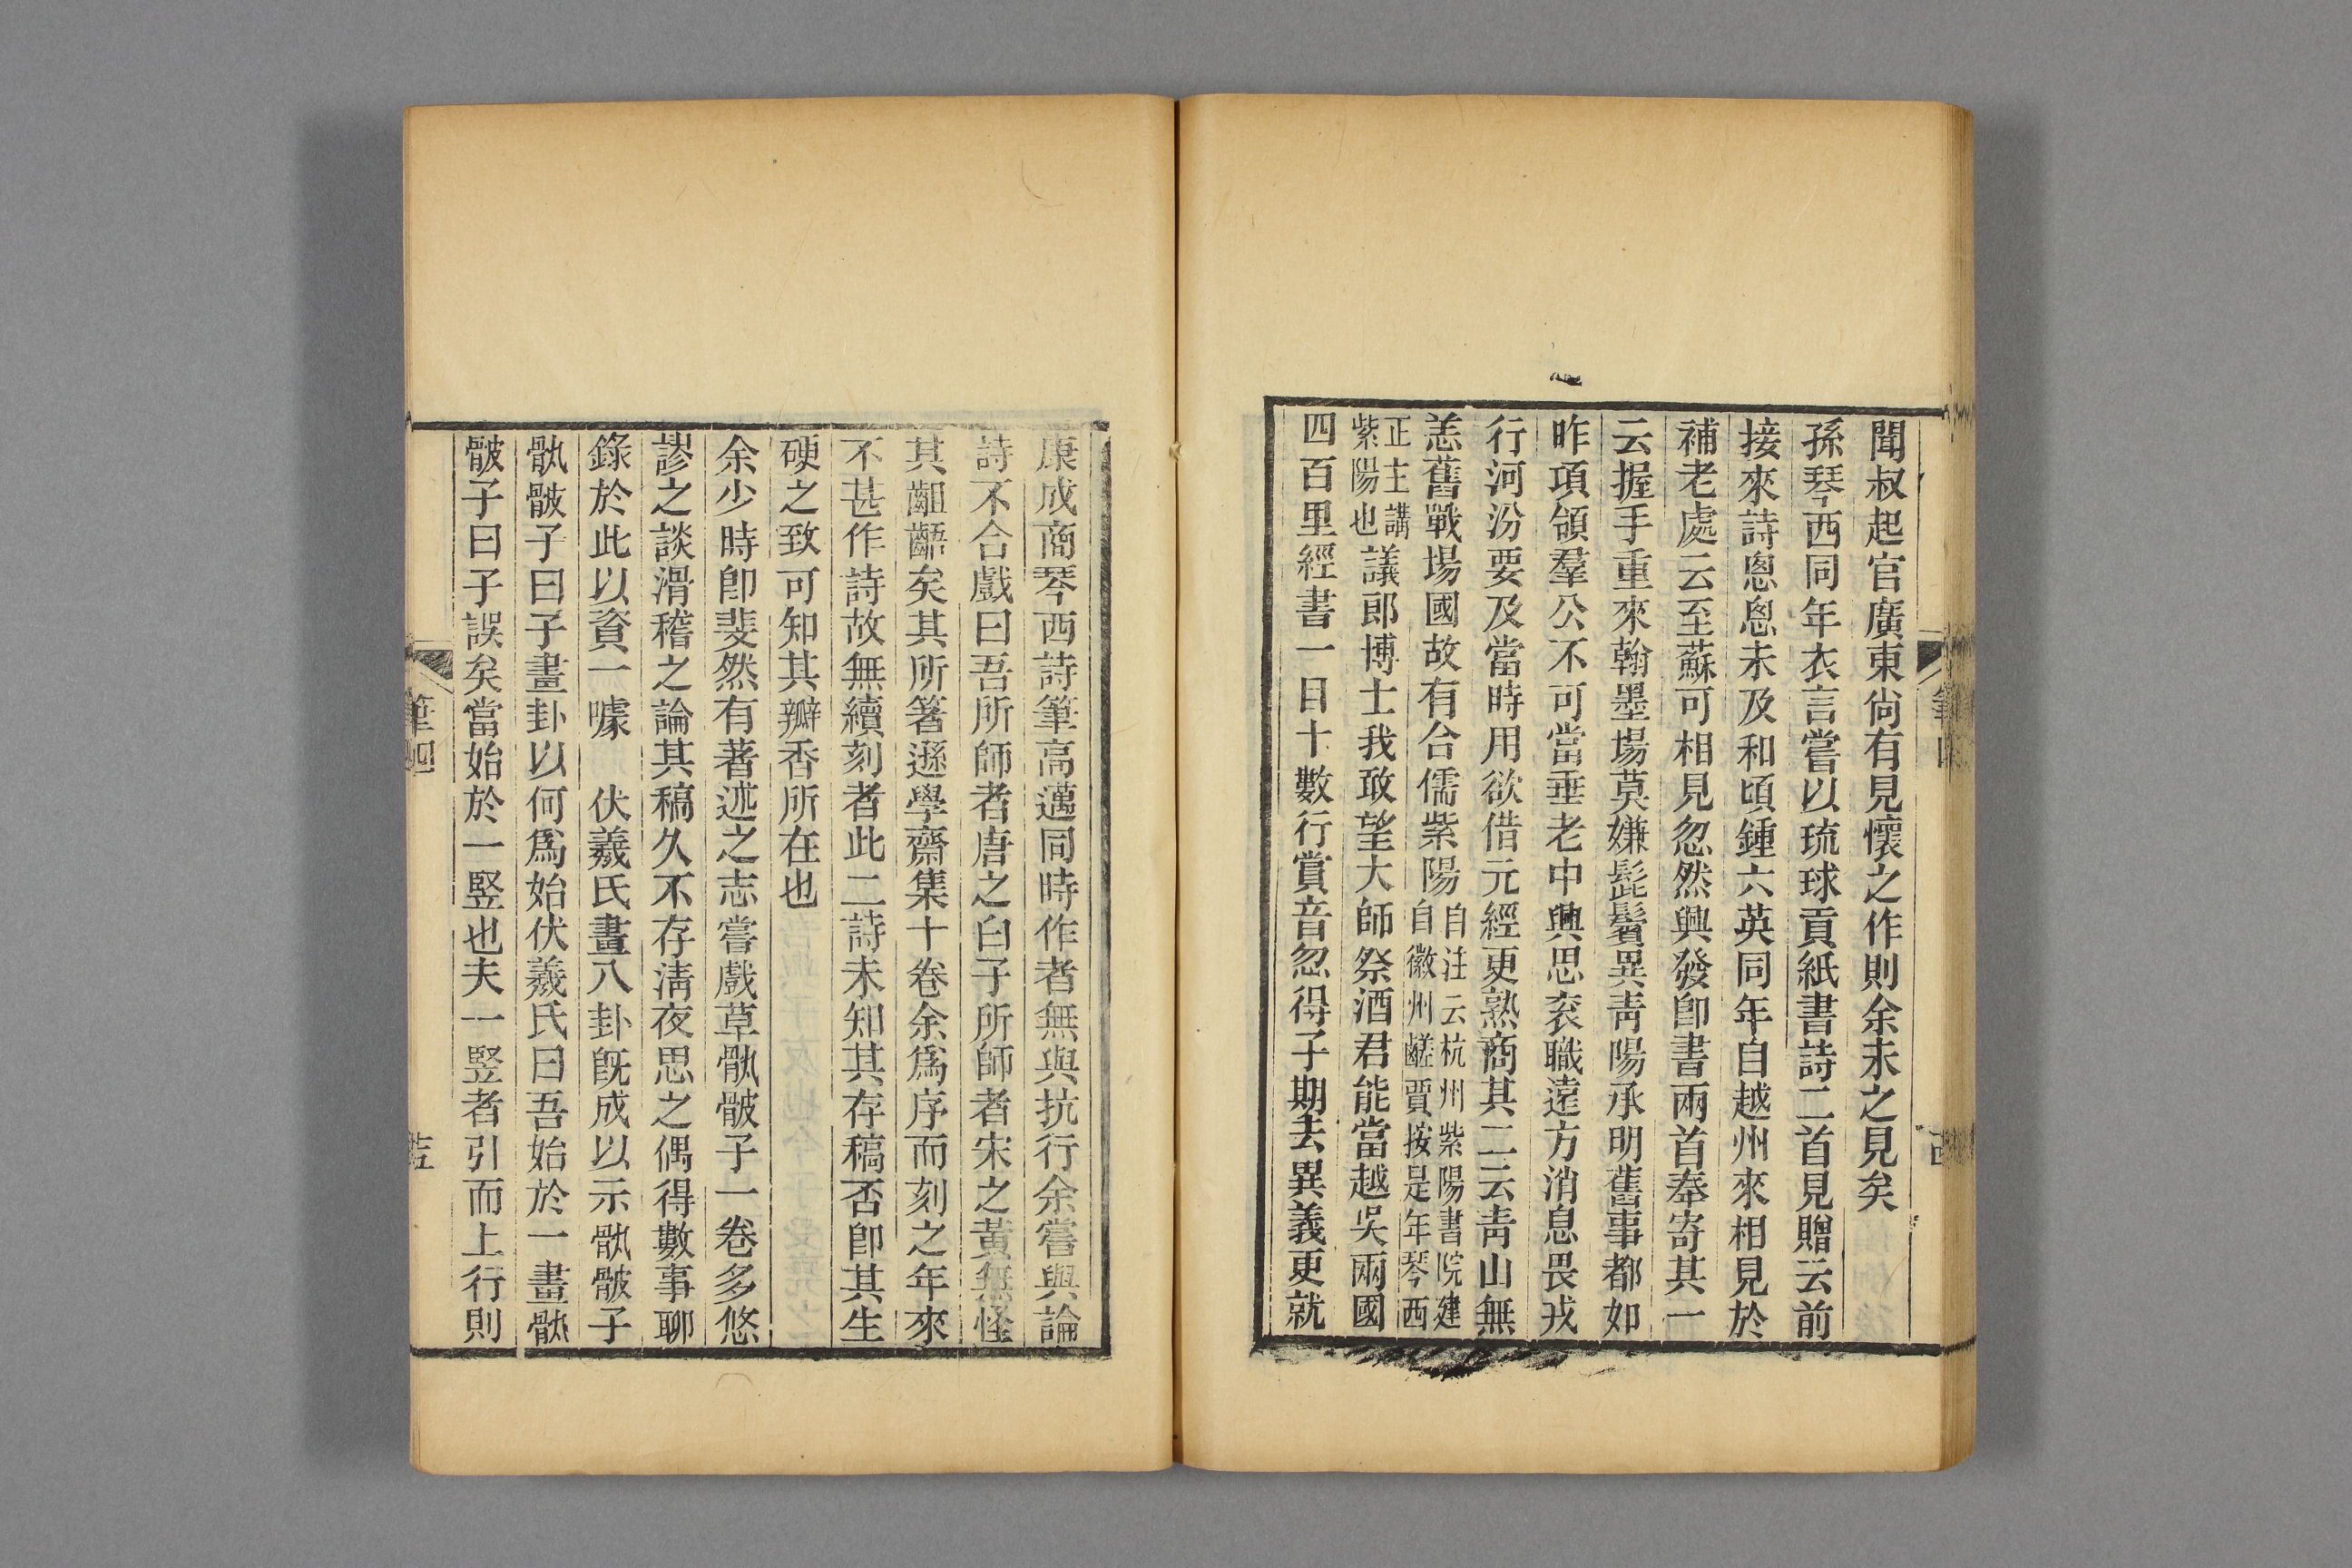 聞叔起官廣東尙有見懷之作則余未之見矣
孫琴西同年衣言嘗以琉球貢紙書詩二首見贈云前
接來詩悤悤未及和頃鍾六英同年自越州來相見於
補老處云至蘇可相見忽然興發卽書兩首奉寄其一
云握手重來翰墨場莫嫌髭鬢異靑陽承明舊事都如
昨項領羣公不可當垂老中興思袞職遠方消息畏戎
行河汾要及當時用欲借元經更熟商其二云靑山無
恙舊戰場國故有合儒紫陽
自注云杭州紫陽書院建
自徽州鹺賈按是年琴西
正主講
紫陽也
議郎博士我敢望大師祭酒君能當越吳兩國
四百里經書一日十數行賞音忽得子期去異義更就
筆四
康成商琴西詩筆高邁同時作者無與抗行余嘗與論
詩不合戲曰吾所師者唐之白子所師者宋之黃無怪
其齟齬矣其所箸遜學齋集十卷余爲序而刻之年來
不甚作詩故無續刻者此二詩未知其存稿否卽其生
硬之致可知其瓣香所在也
余少時卽斐然有著述之志嘗戲草骩骳子一卷多悠
謬之談滑稽之論其稿久不存淸夜思之偶得數事聊
錄於此以資一噱 伏羲氏畫八卦旣成以示骩骳子
骩骳子曰子畫卦以何爲始伏羲氏曰吾始於一畫骩
骳子曰子誤矣當始於一竪也夫一竪者引而上行則
筆四